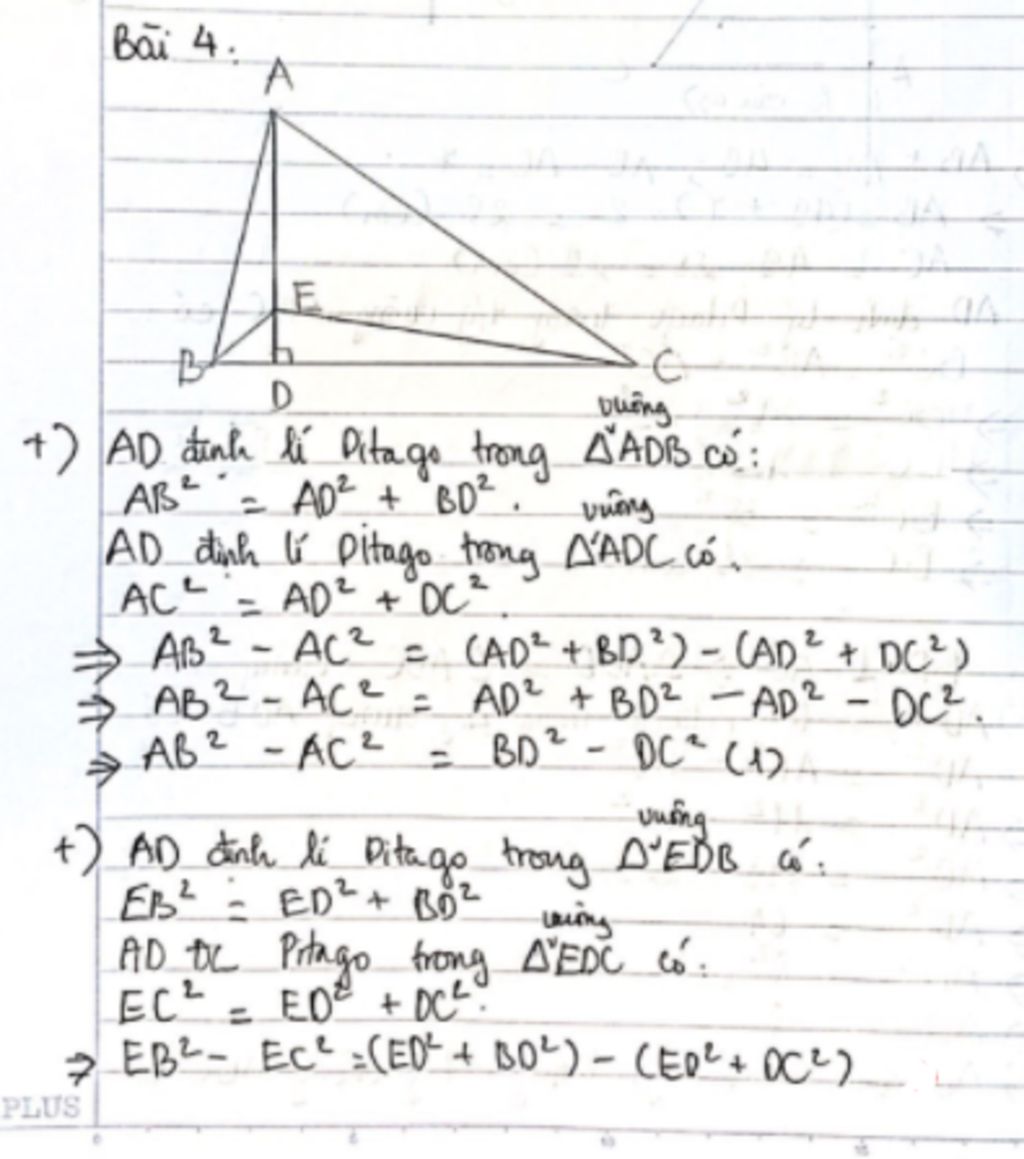 Bài 4.
A
E
B
C
D
+) AD định lí Pitago trong Δ vuông ADB có:
AB² = AD² + BD².
AD định lí Pitago trong Δ vuông ADC có.
AC² = AD² + DC².
⇒ AB² - AC² = (AD² + BD²) - (AD² + DC²)
⇒ AB² - AC² = AD² + BD² - AD² - DC².
⇒ AB² - AC² = BD² - DC² (1)
+) AD định lí Pitago trong Δ vuông EDB có:
EB² = ED² + BD²
AD ĐL Pitago trong Δ vuông EDC có:
EC² = ED² + DC².
⇒ EB² - EC² = (ED² + BD²) - (ED² + DC²)
PLUS
0 5 10 15